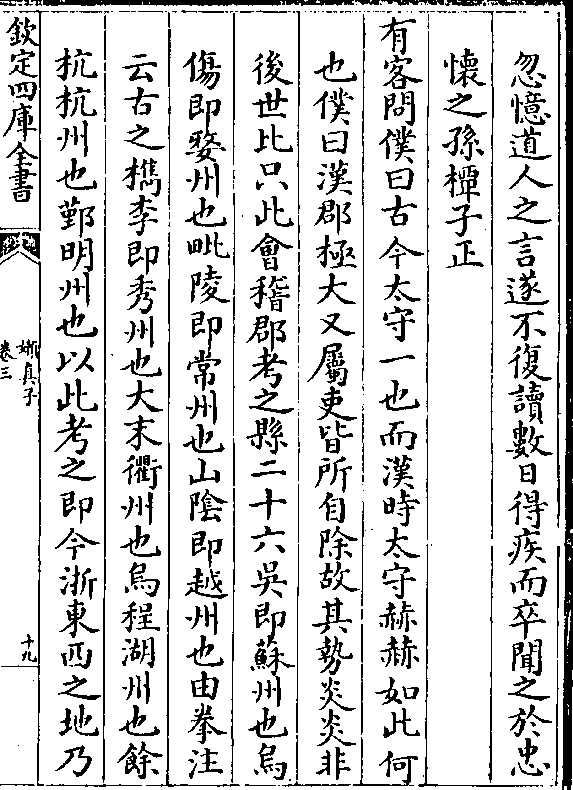 忽憶道人之言遂不復讀數日得疾而卒聞之於忠
懷之孫櫸子正
有客問僕曰古今太守一也而漢時太守赫赫如此何
也僕曰漢郡極大又屬吏皆所自除故其勢炎炎非
後世比只此會稽郡考之縣二十六吳即蘇州也烏
傷即婺州也毗陵即常州也山陰即越州也由拳注
云古之檇李即秀州也大末衢州也烏程湖州也餘
杭杭州也鄞明州也以此考之即今浙東西之地乃
欽定四庫全書
嬾真子
卷三
十九